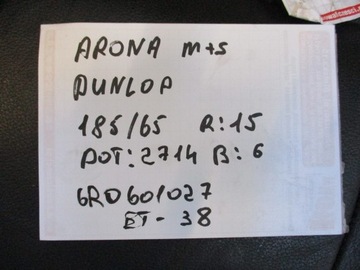 ARONA M+S
DUNLOP
185/65 R:15
DOT:2714 B:6
6RD601027
ET-38